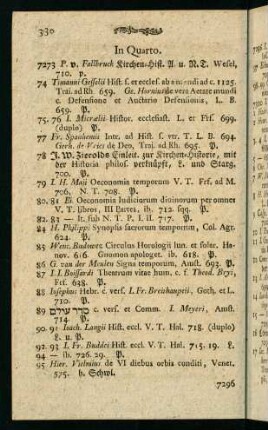 330
In Quarto.
7273 P. v. Fallbruck Kirchen-Hist. A. u. N. T. Wesel,
710. p.
74 Timanni Gesselii Hist. f. et eccles. ab a condi ad c. 1125.
Trai. ad Rh. 659. Ge. Hornius de vera Aetate mundi
c. Defensione et Auctario Defensionis, L. B.
659. P.
75. 76 I. Micraelii Histor. ecclesiast. L. et Frf. 699.
(duplo) P.
77 Fr. Spanhemii Intr. ad Hist. f. vtr. T. L. B. 694.
Gerh. de Vries de Deo, Trai. ad Rh. 695. P.
78 J. W. Zierolds Einleit. zur Kirchen-Historie, mit
der Historia philos. verknüpft, L. und Starg.
700. P.
79 I. H. Maji Oeconomia temporum V. T. Frf. ad M.
706. N. T. 708. P.
80. 81 Ei. Oeconomia Iudiciorum diuinorum per omnes
V. T. libros, III Partes, ib. 712. sqq. P.
82. 83 — It. sub N. T. P. I. il. 717. P.
84 H. Philippi Synopsis sacrorum temporum, Col. Agr.
624. P.
85 Wenc. Budowez Circulus Horologii lun. et solar. Hanov.
616. Gnomon apologet. ib. 618. P.
86 G. van der Meulen Signa temporum, Amst. 692. P.
87 I. I. Boissardi Theatrum vitae hum. c. f. Theod. Bryi,
Frf. 638. P.
88 Iosephus Hebr. c. verf. I. Fr. Breithaupti, Goth. et L.
710. P.
89 סדר עולם c. verf. et Comm. I. Meyeri, Amst.
714 P.
90. 91 Ioach. Langii Hist. eccl. V. T. Hal. 718. (duplo)
L. u. P.
92. 93 I. Fr. Buddei Hist. eccl. V. T. Hal. 715. 19. L.
94 — ib. 726. 29. P.
95 Hier. Vielmius de VI diebus orbis conditi, Venet.
575. h. Schwl.
7296